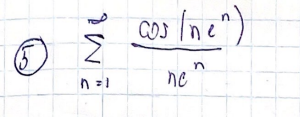 ⑤ $\sum_{n=1}^{\infty} \frac{\cos(ne^n)}{ne^n}$